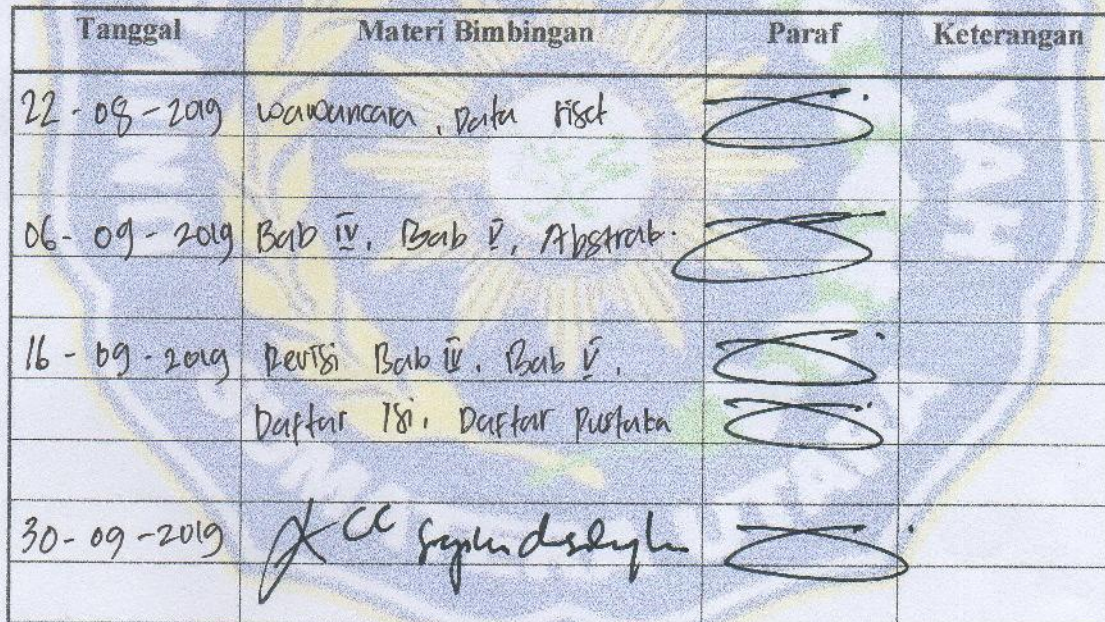 Tanggal Materi Bimbingan Paraf Keterangan
22-08-2019 Wawancara, Data riset
06-09-2019 Bab IV, Bab V, Abstrak.
16-09-2019 Revisi Bab IV, Bab V,
Daftar Isi, Daftar Pustaka
30-09-2019 ACC
SUMATERA UTARA